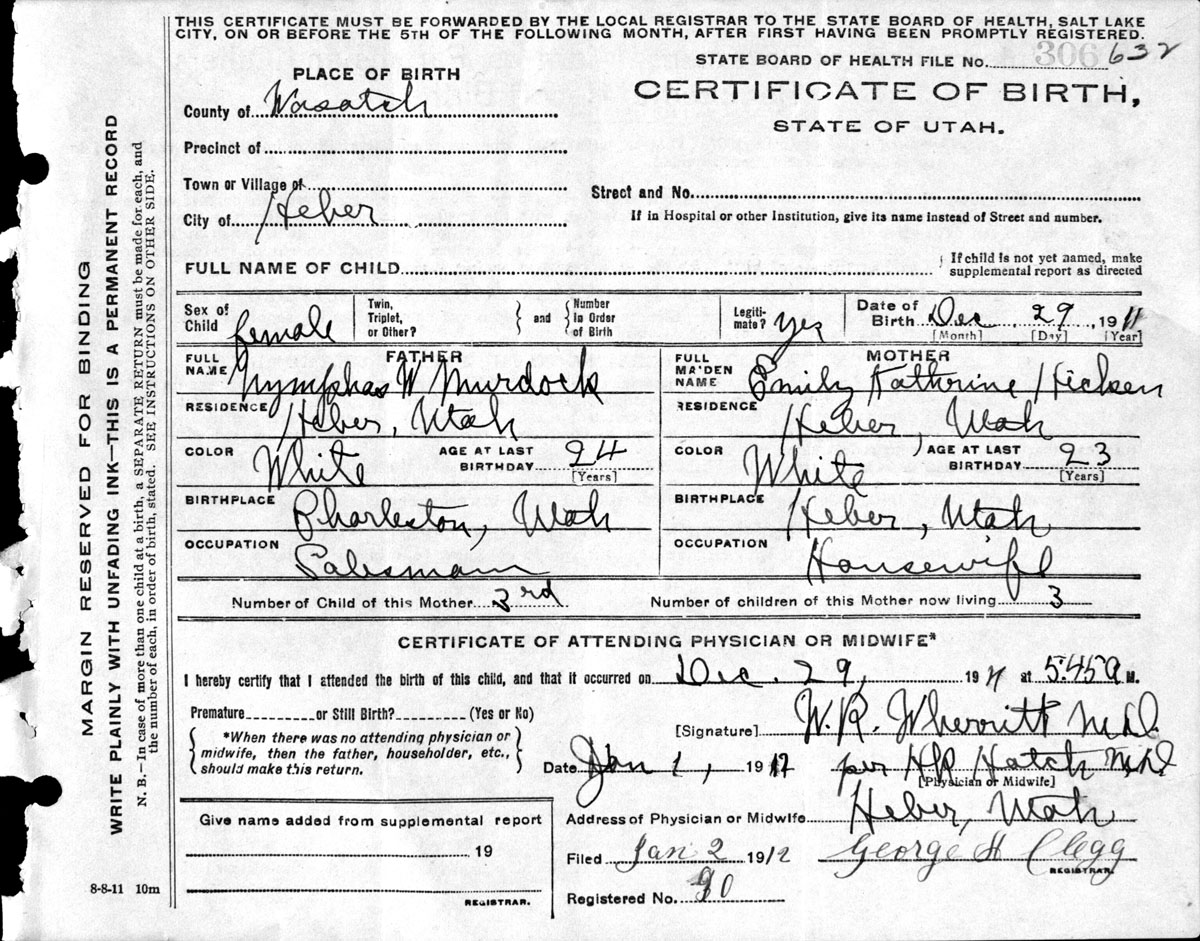 THIS CERTIFICATE MUST BE FORWARDED BY THE LOCAL REGISTRAR TO THE STATE BOARD OF HEALTH, SALT LAKE
CITY, ON OR BEFORE THE 5TH OF THE FOLLOWING MONTH, AFTER FIRST HAVING BEEN PROMPTLY REGISTERED.
STATE BOARD OF HEALTH FILE No. 306 632
PLACE OF BIRTH
CERTIFICATE OF BIRTH,
STATE OF UTAH.
County of Wasatch
Precinct of
Town or Village of
Street and No.
City of Heber
If in Hospital or other Institution, give its name instead of Street and number.
FULL NAME OF CHILD
If child is not yet named, make
supplemental report as directed
Sex of Child female
Twin, Triplet, or Other?
and
Number in Order of Birth
Legiti-mate? yes
Date of Birth Dec 29, 1911
[Month] [Day] [Year]
FATHER
FULL NAME Nymphas W Murdock
RESIDENCE Heber, Utah
COLOR White
AGE AT LAST BIRTHDAY 24
[Years]
BIRTHPLACE Charleston, Utah
OCCUPATION Salesman
MOTHER
FULL MAIDEN NAME Emily Katherine Hicken
RESIDENCE Heber, Utah
COLOR White
AGE AT LAST BIRTHDAY 23
[Years]
BIRTHPLACE Heber, Utah
OCCUPATION Housewife
Number of Child of this Mother 3rd
Number of children of this Mother now living 3
CERTIFICATE OF ATTENDING PHYSICIAN OR MIDWIFE*
I hereby certify that I attended the birth of this child, and that it occurred on Dec. 29, 1911 at 5:45 a M.
Premature or Still Birth? (Yes or No)
*When there was no attending physician or
midwife, then the father, householder, etc.,
should make this return.
[Signature] W. R. Wherritt M.D.
per HR Hatch M.D
[Physician or Midwife]
Date Jan 1, 1912
Address of Physician or Midwife Heber, Utah
Filed Jan 2 1912
George H Clegg
REGISTRAR.
Registered No. 90
Give name added from supplemental report
19
REGISTRAR.
8-8-11 10m
MARGIN RESERVED FOR BINDING
WRITE PLAINLY WITH UNFADING INK—THIS IS A PERMANENT RECORD
N. B.—In case of more than one child at a birth, a SEPARATE RETURN must be made for each, and
the number of each, in order of birth, stated. SEE INSTRUCTIONS ON OTHER SIDE.